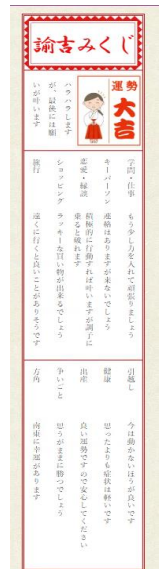 諭吉みくじ
運勢
大吉
ハラハラします
が、最後には願
いが叶います
学問・仕事
もう少し力を入れて頑張りましょう
キーパーソン
連絡はありますが来ないでしょう
恋愛・縁談
積極的に行動すれば叶いますが調子に
乗ると破れます
ショッピング
ラッキーな買い物が出来るでしょう
旅行
遠くに行くと良いことがありそうです
引越し
今は動かないほうが良いです
健康
思ったよりも症状は軽いです
出産
良い運勢ですので安心してください
争いごと
思うがままに勝つでしょう
方角
南東に幸運があります